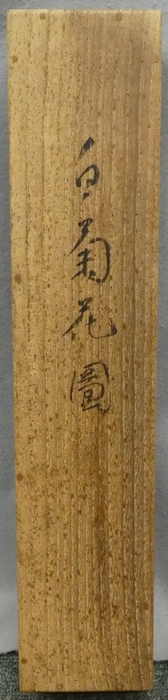 白菊花圖